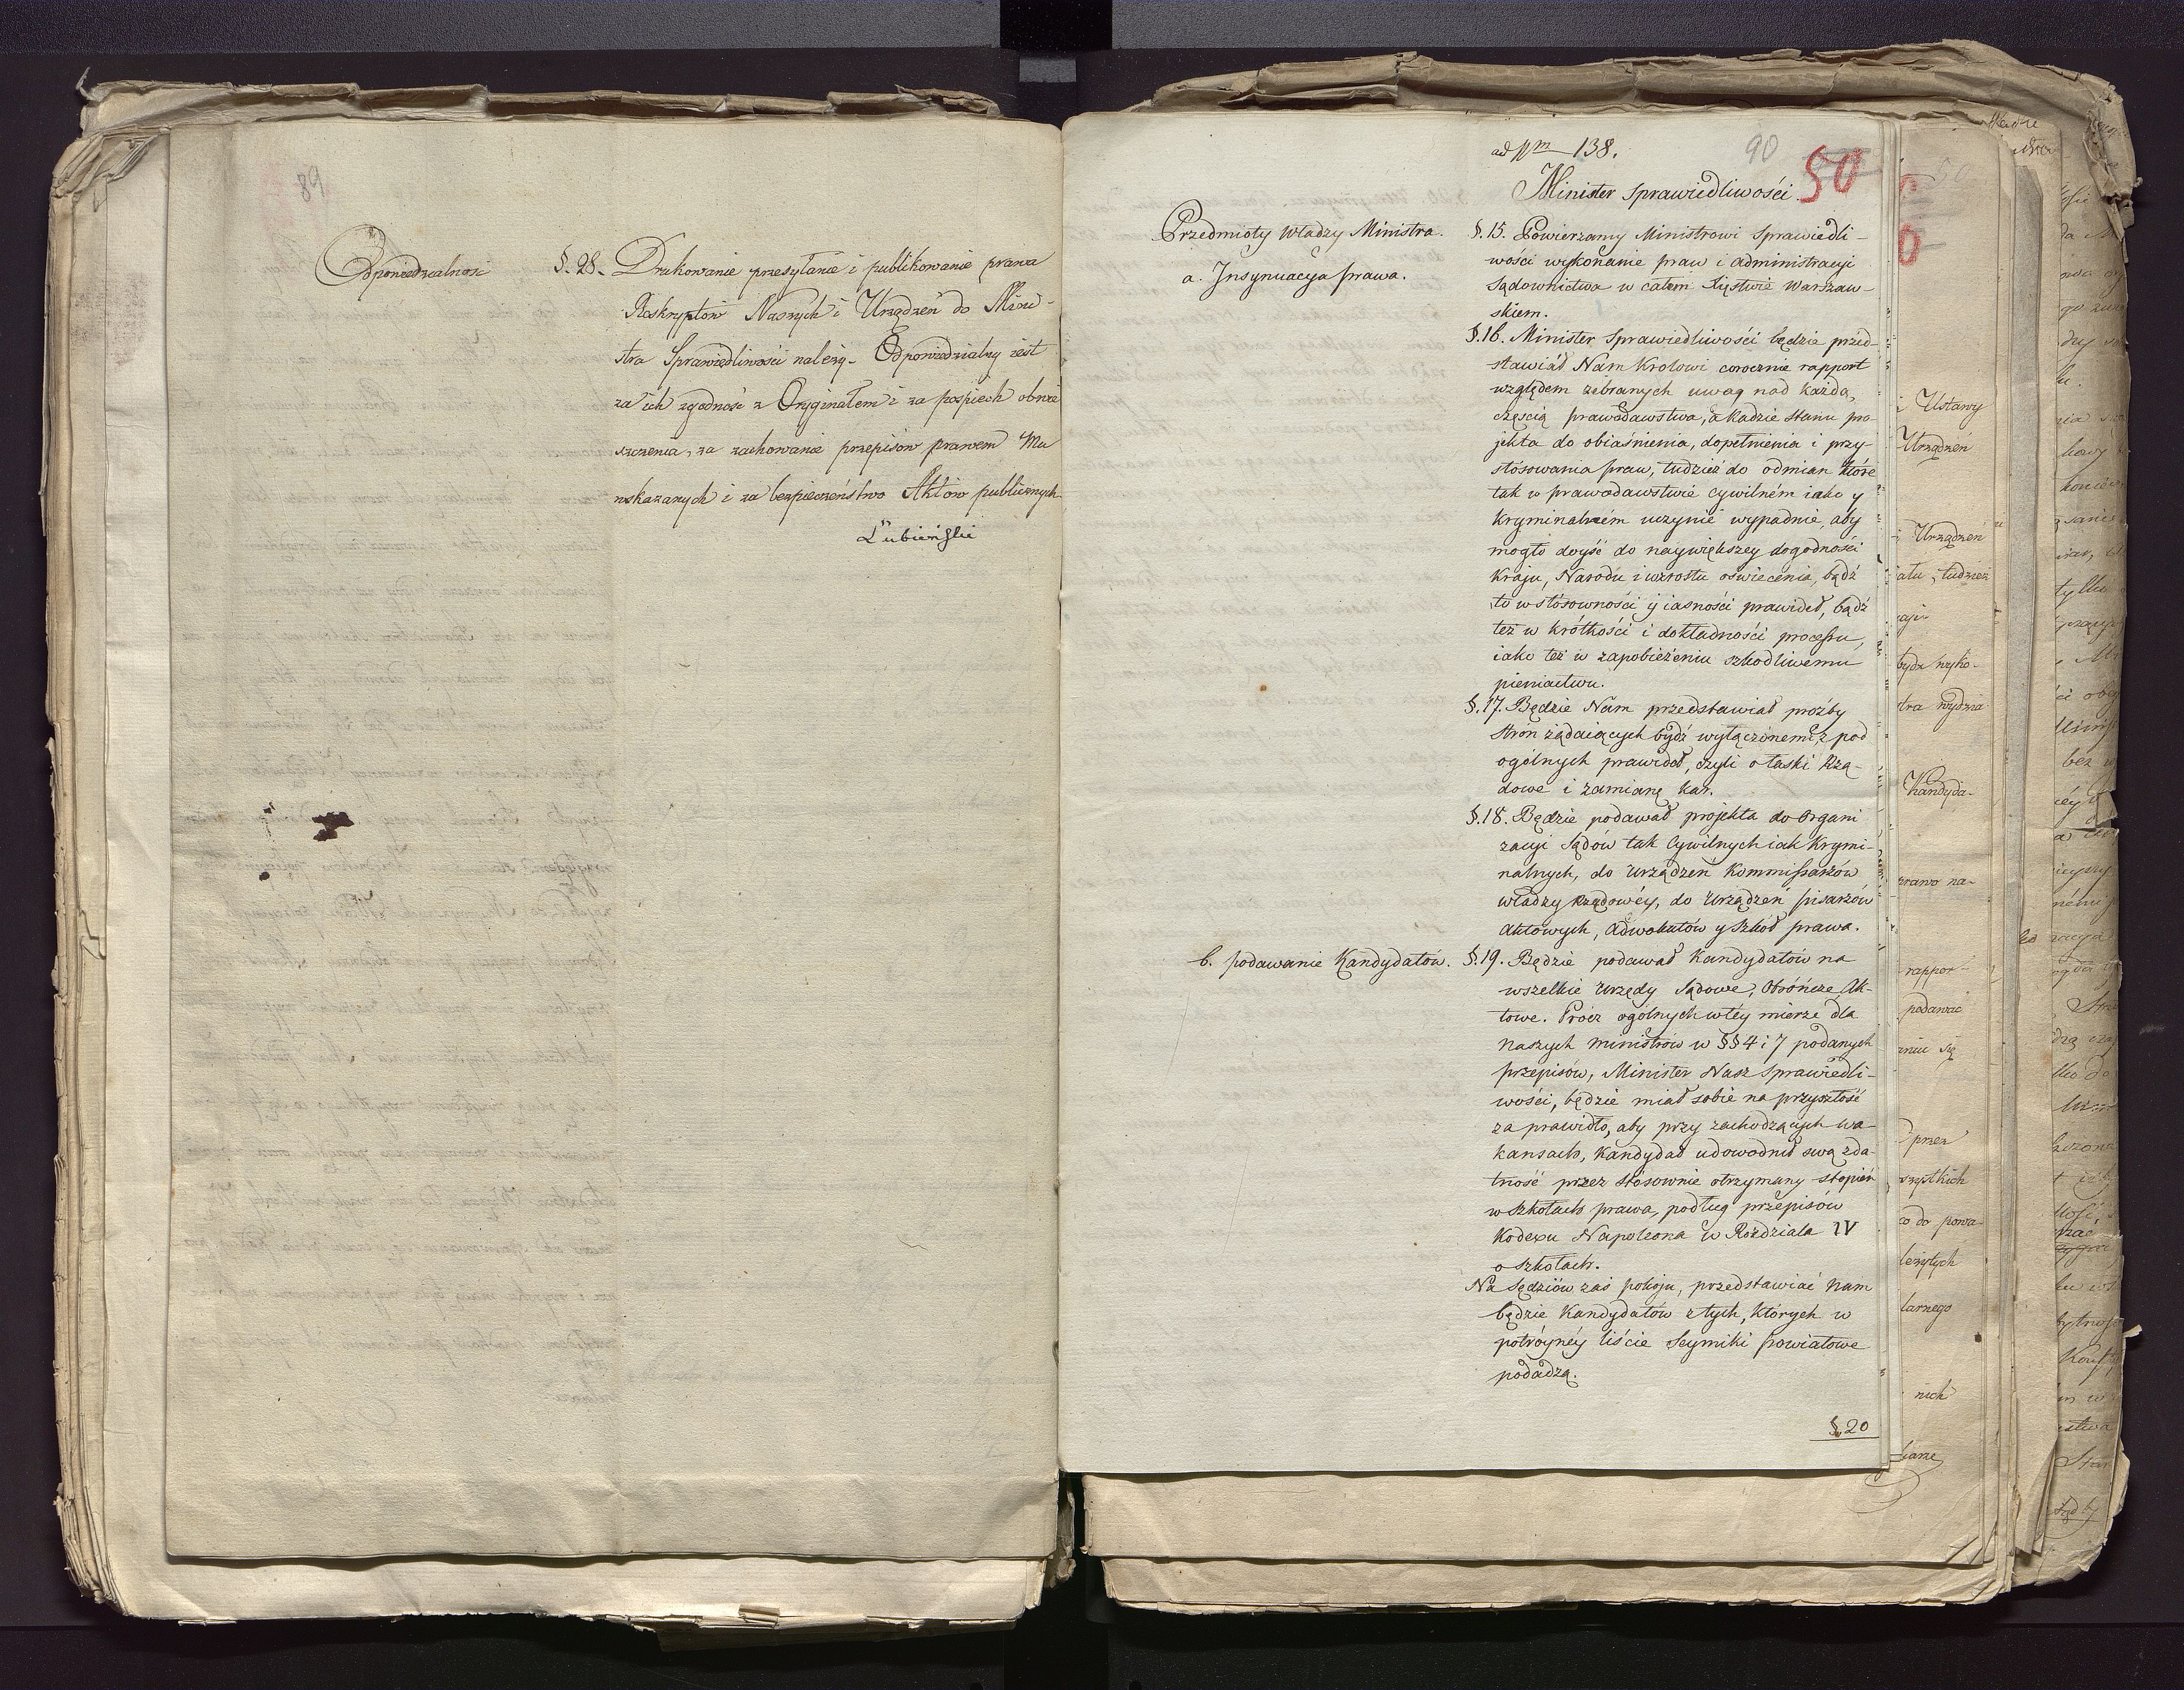 89
Odpowiedzialność
§. 28. Drukowanie przesyłanie i publikowanie prawa
Reskryptów Naszych i Urządzeń do Mini-
stra Sprawiedliwości należy. Odpowiedzialny iest
za ich zgodność z Oryginałem i za pospiech obwie
szczenia, za zachowanie przepisów prawem Mu
wskazanych i za bezpieczeństwo Aktów publicznych
Łubieński
138.
90
50
Minister Sprawiedliwości.
Przedmioty Władzy Ministra.
a. Insynuacyja prawa.
§. 15. Powierzamy Ministrowi Sprawiedli-
wości wykonanie praw i administracyi
Sądownictwa w całem Xięstwie Warszaw-
skiem.
§. 16. Minister Sprawiedliwości będzie przed-
stawiał Nam Krolowi corocznie rapport
względem zebranych uwag nad każdą
częścią prawodawstwa, a Radzie Stanu pro
jekta do obiaśnienia, dopełnienia i przy-
stósowania praw, tudzież do odmian które
tak w prawodawstwie cywilném iako y
kryminalném uczynić wypadnie, aby
mogło doyść do naywiększey dogodności
Kraju, Narodu i wzrostu oświecenia, bądź
to w stósowności y iasności prawideł, bądź
też w krótkości i dokładności processu,
iako też w zapobieżeniu szkodliwemu
pieniactwu.
§. 17. Będzie Nam przedstawiał proźby
Stron żądaiących bydź wyłączonemi z pod
ogólnych prawideł, czyli o łaski Rzą-
dowe i zamianę kar.
§. 18. Będzie podawał projekta do Organi
zacyi Sądów tak Cywilnych iak Krymi-
nalnych, do Urządzeń Kommissarzów
władzy Rządowéy, do Urządzeń pisarzów
Aktowych, Adwokatów y Szkół prawa.
b. podawanie Kandydatów.
§. 19. Będzie podawał Kandydatów na
wszelkie Urzędy Sądowe, Obróńcze, Ak-
towe. Prócz ogólnych w téy mierze dla
naszych ministrów w §§ 4 i 7 podanych
przepisów, Minister Nasz Sprawiedli-
wości, będzie miał sobie na przyszłość
za prawidło, aby przy zachodzących wa-
kansach, Kandydat udowodnił swą zda-
tność przez stósownie otrzymany stopień
w szkołach prawa, podług przepisów
Kodexu Napoleona w Rozdziale IV
o szkołach.
Na Sędziów zaś pokoju, przedstawiać nam
będzie Kandydatów z tych, których w
potróynéy liście Seymiki powiatowe
podadzą.
§. 20
Ustawy
Urządzen
Urządzeń
tudzież
Kandyda-
prawo na-
rappor-
podawać
przez
wszystkich
co do powa-
nich